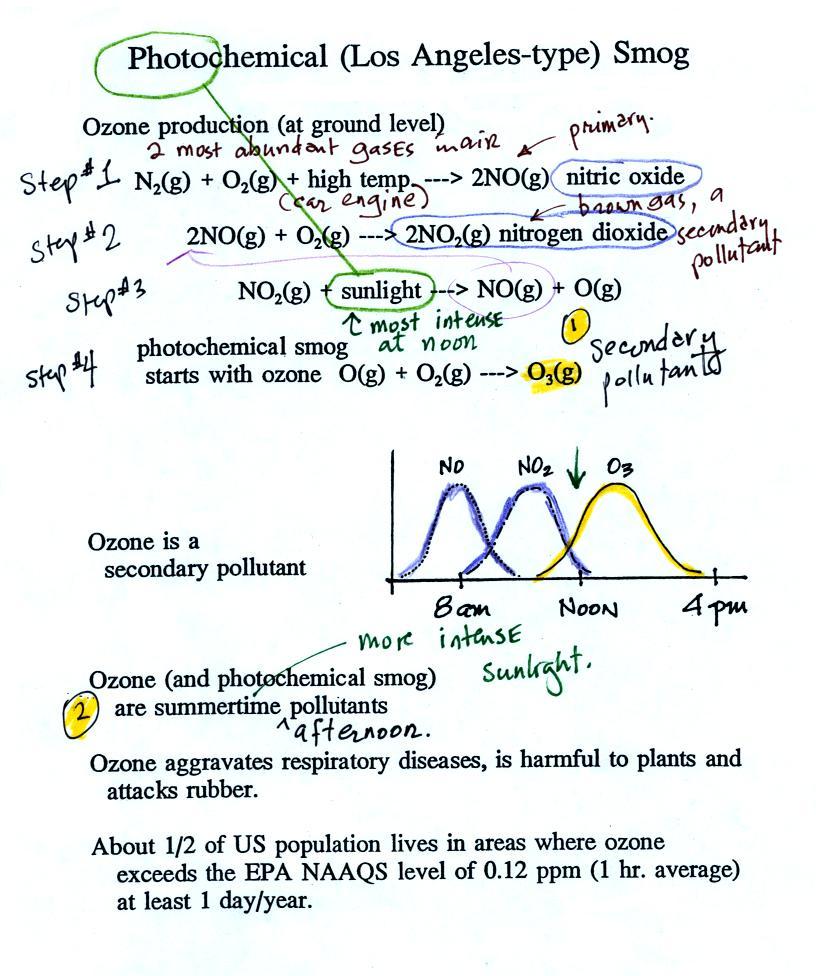 Photochemical (Los Angeles-type) Smog
Ozone production (at ground level)
primary.
2 most abundant gases in air
Step #1 N₂(g) + O₂(g) + high temp. ---> 2NO(g) nitric oxide
(car engine)
brown gas, a
Step #2 2NO(g) + O₂(g) ---> 2NO₂(g) nitrogen dioxide secondary
pollutant
Step #3 NO₂(g) + sunlight ---> NO(g) + O(g)
↑ most intense
at noon
1
secondary
pollutants
photochemical smog
Step #4 starts with ozone O(g) + O₂(g) ---> O₃(g)
NO NO₂ O₃
Ozone is a
secondary pollutant
8am NOON 4pm
more intense
sunlight.
Ozone (and photochemical smog)
2 are summertime pollutants
^afternoon.
Ozone aggravates respiratory diseases, is harmful to plants and
attacks rubber.
About 1/2 of US population lives in areas where ozone
exceeds the EPA NAAQS level of 0.12 ppm (1 hr. average)
at least 1 day/year.